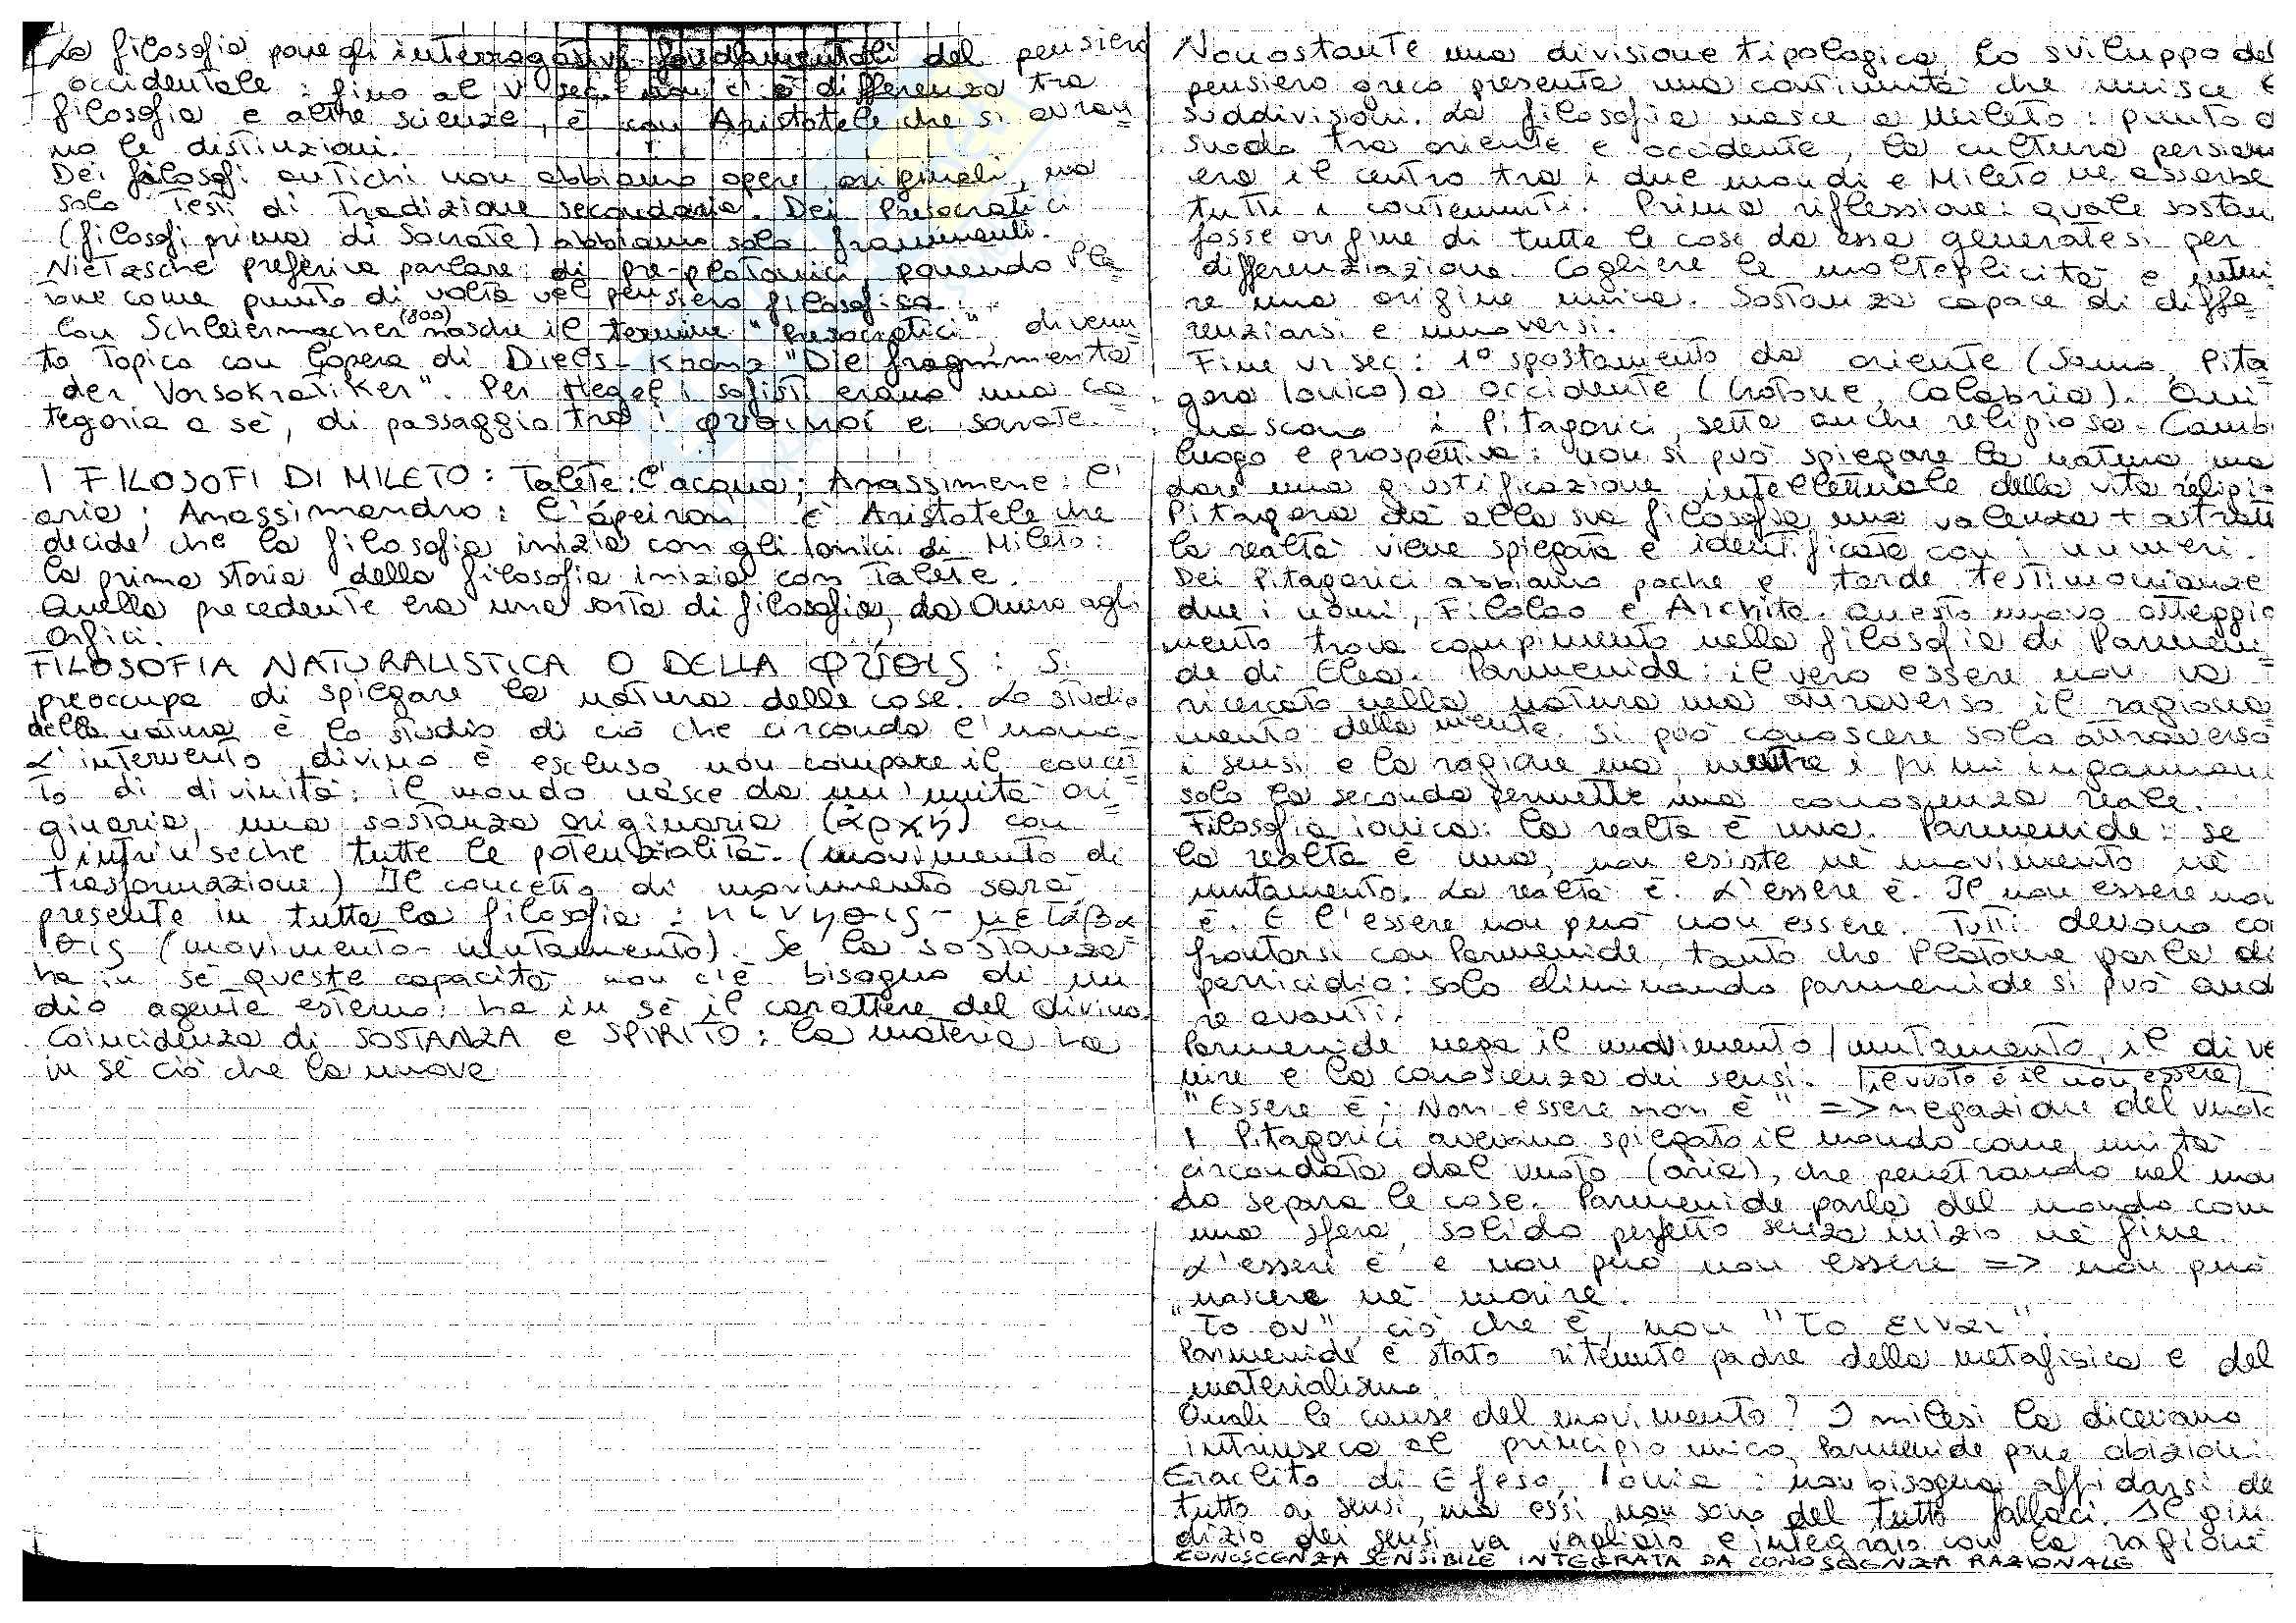 La filosofia pone gli interrogativi fondamentali del pensiero
occidentale: fino al V sec. non c'è differenza tra
filosofia e altre scienze, è con Aristotele che si avran=
no le distinzioni.
Dei filosofi antichi non abbiamo opere originali, ma
solo Testi di Tradizione secondaria. Dei Presocratici
(filosofi prima di Socrate) abbiamo solo frammenti.
Nietzsche preferiva parlare di pre-platonici, ponendo Pla=
tone come punto di volta nel pensiero filosofico.
Con Schleiermacher (800) nasche il termine "Presocratici", divenu
to Topico con l'opera di Diels-Kranz "Die fragmmenta
der Vorsokratiker". Per Hegel i sofisti erano una ca=
tegoria a sè, di passaggio tra i e Socrate.
I FILOSOFI DI MILETO: Talete: l'acqua; Anassimene: l'
aria; Anassimandro: l'ápeiron è Aristotele che
decide che la filosofia inizia con gli Ionici di Mileto:
la prima storia della filosofia inizia con Talete.
Quella precedente era una sorta di filosofia, da Omero agli
Orfici.
FILOSOFIA NATURALISTICA O DELLA φύσις: Si
preoccupa di spiegare la natura delle cose. Lo studio
della natura è lo studio di ciò che circonda l'uomo.
L'intervento divino è escluso, non compare il concet=
to di divinità: il mondo nasce da un'unità ori=
ginaria, una sostanza originaria (αρχή) con
intrinseche tutte le potenzialità. (movimento di
trasformazione) Il concetto di movimento sarà
presente in tutta la filosofia: κίνησις - μετάβα=
σις (movimento - mutamento). Se la sostanza
ha in sè queste capacità non c'è bisogno di un
dio agente esterno: ha in sè il carattere del divino.
Coincidenza di SOSTANZA e SPIRITO: la materia ha
in sè ciò che la muove
Nonostante una divisione tipologica, lo sviluppo del
pensiero greco presenta una continuità che unisce
suddivisioni. La filosofia nasce a Mileto: punto
snodo tra oriente e occidente, la cultura persiana
era il centro tra i due mondi e Mileto ne assorbe
tutti i contenuti. Prima riflessione: quale sostan
fosse origine di tutte le cose da essa generatesi per
differenziazione. Cogliere le molteplicità e
re una origine unica. Sostanza capace di diffe=
renziarsi e muoversi.
Fine VI sec: 1º spostamento da oriente (Samo, Pita=
gora ionico) a occidente (Crotone, Calabria). Qui
nascono i Pitagorici, setta anche religiosa. Cambi
luogo e prospettiva: non si può spiegare la natura, ma
dare una giustificazione intellettuale della vita religio
Pitagora dà alla sua filosofia una valenza + astratta
la realtà viene spiegata e identificata con i numeri.
Dei Pitagorici abbiamo poche e tarde testimonianze
due i nomi, Filolao e Archita. Questo nuovo atteggia
mento trova compimento nella filosofia di Parmeni=
de di Elea. Parmenide: il vero essere non va
ricercato nella natura ma attraverso il ragiona
mento della mente. Si può conoscere solo attraverso
i sensi e la ragione ma, mentre i primi ingannano
solo la seconda permette una conoscenza reale.
Filosofia ionica: la realtà è una. Parmenide: se
la realtà è una, non esiste nè movimento nè
mutamento. La realtà è. L'essere è. Il non essere non
è. E l'essere non può non essere. Tutti devono con
frontarsi con Parmenide, tanto che Platone parla di
parricidio: solo eliminando parmenide si può anda
re avanti.
Parmenide nega il movimento/mutamento, il dive
nire e la conoscenza dei sensi. (il vuoto è il non essere)
"Essere è; Non essere non è" => negazione del vuoto
I Pitagorici avevano spiegato il mondo come unità
circondata dal vuoto (aria), che penetrando nel mon
do separa le cose. Parmenide parla del mondo come
una sfera, solido perfetto senza inizio nè fine.
L'essere è e non può non essere => non può
nascere nè morire.
"Το όν", ciò che è, non "το είναι".
Parmenide è stato ritenuto padre della metafisica e del
materialismo.
Quali le cause del movimento? I milesi la dicevano
intrinseca al principio unico, Parmenide pone obiezioni
Eraclito di Efeso, Ionia: non bisogna affidarsi del
tutto ai sensi, ma essi non sono del tutto fallaci. Il giu
dizio dei sensi va vagliato e integrato con la ragione
CONOSCENZA SENSIBILE INTEGRATA DA CONOSCENZA RAZIONALE